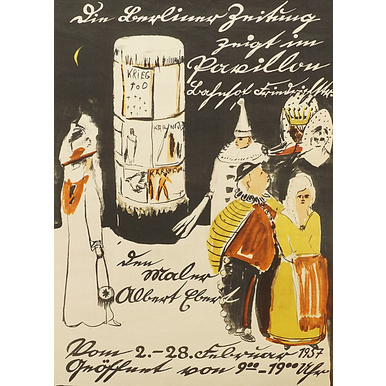 Die Berliner Zeitung
zeigt im
Pavillon
Bahnhof Friedrichstr.
KRIEG
TOD
den
Maler
Albert Ebert
Vom 2.-28. Februar 1957
Geöffnet von 9⁰⁰-19⁰⁰ Uhr